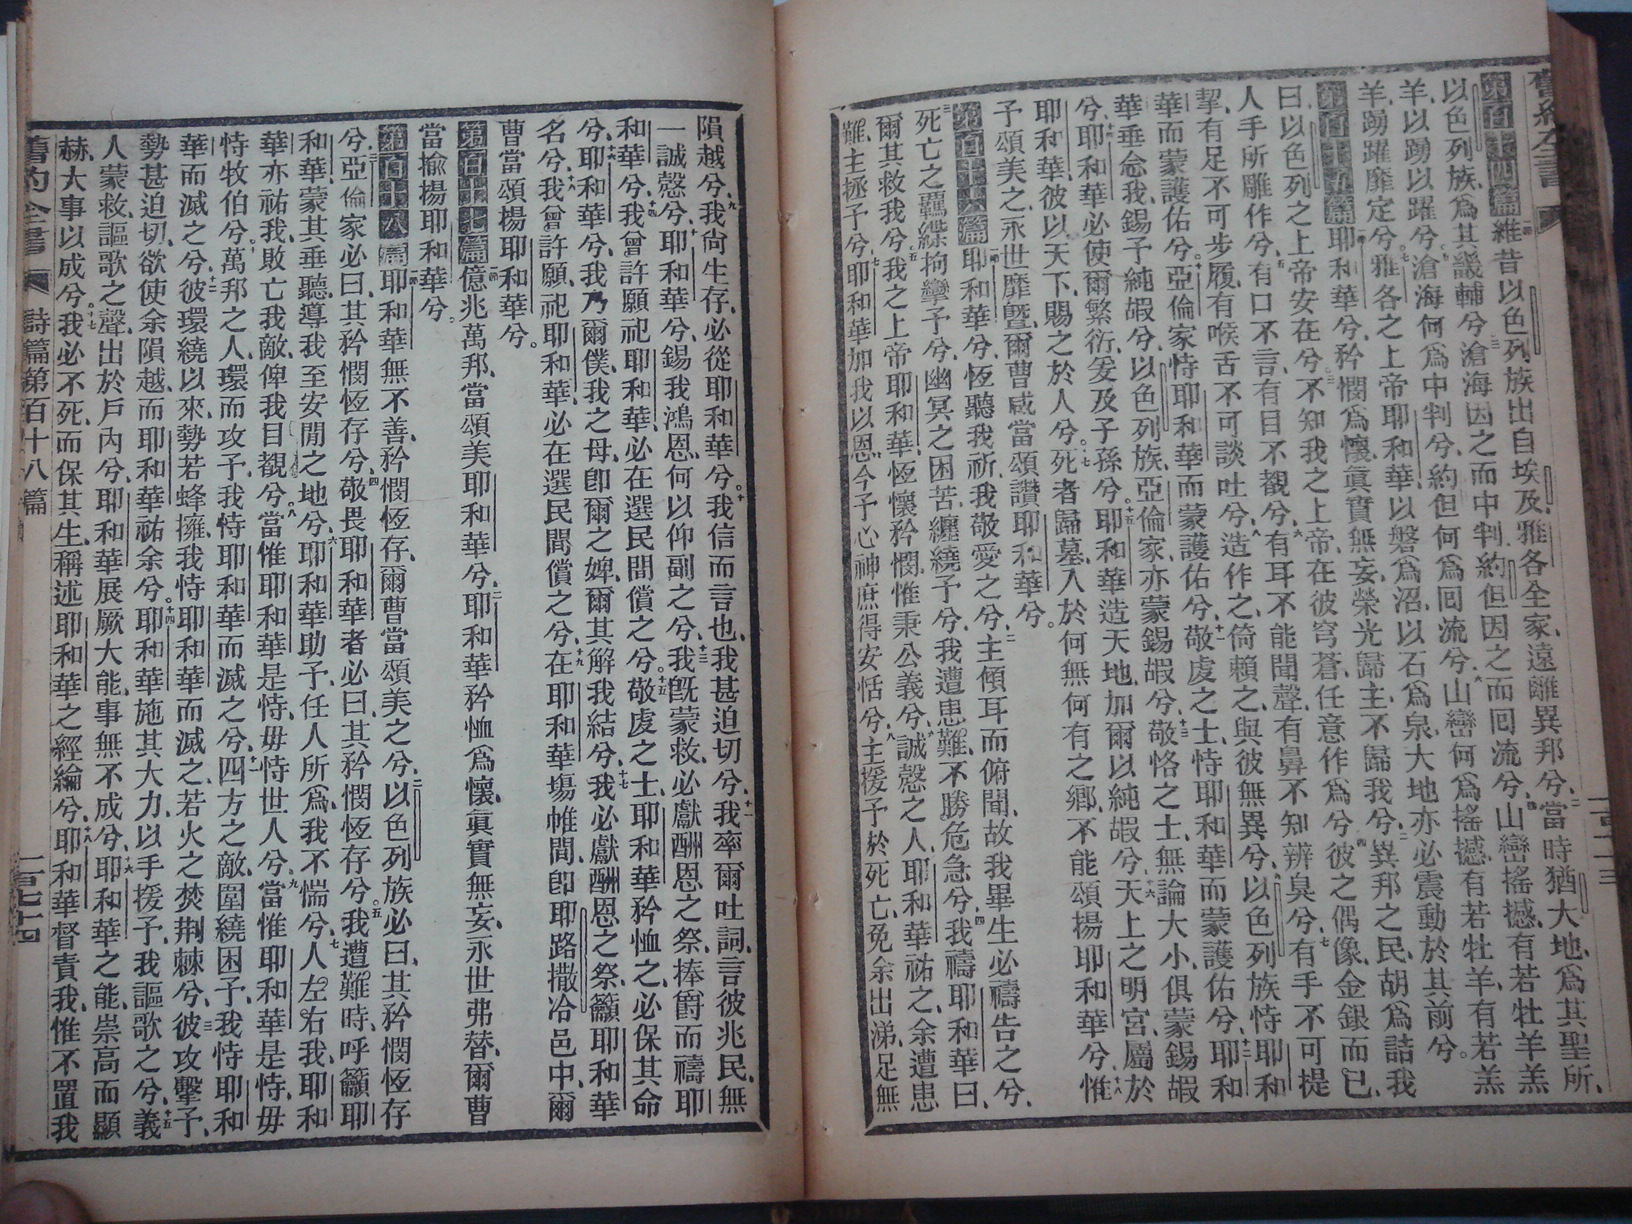 第百十四篇維昔以色列族出自埃及雅各全家遠離異邦兮當時猶大地爲其聖所
以色列族爲其畿輔兮滄海因之而中判約但因之而囘流兮山巒搖撼有若牡羊羔
羊以踴以躍兮滄海何爲中判兮約但何爲囘流兮山巒何爲搖撼有若牡羊有若羔
羊踴躍靡定兮雅各之上帝耶和華以磐爲沼以石爲泉大地亦必震動於其前兮
第百十五篇耶和華兮矜憫爲懷眞實無妄榮光歸主不歸我兮異邦之民胡爲詰我
曰以色列之上帝安在兮不知我之上帝在彼穹蒼任意作爲兮彼之偶像金銀而已
人手所雕作兮有口不言有目不覩兮有耳不能聞聲有鼻不知辨臭兮有手不可提
挈有足不可步履有喉舌不可談吐兮造作之倚賴之與彼無異兮以色列族恃耶和
華而蒙護佑兮亞倫家恃耶和華而蒙護佑兮敬虔之士恃耶和華而蒙護佑兮耶和
華垂念我錫予純嘏兮以色列族亞倫家亦蒙錫嘏兮敬恪之士無論大小俱蒙錫嘏
兮耶和華必使爾繁衍爰及子孫兮耶和華造天地加爾以純嘏兮天上之明宮屬於
耶和華彼以天下賜之於人兮死者歸墓入於何無何有之鄕不能頌揚耶和華兮惟
予頌美之永世靡曁爾曹咸當頌讚耶和華兮
第百十六篇耶和華兮恆聽我祈我敬愛之兮主傾耳而俯聞故我畢生必禱告之兮
死亡之羈緤拘攣予兮幽冥之困苦纏繞予兮我遭患難不勝危急兮我禱耶和華曰
爾其救我兮我之上帝耶和華恆懷矜憫惟秉公義兮誠慤之人耶和華祐之余遭患
難主拯予兮耶和華加我以恩今予心神庶得安恬兮主援予於死亡免余出涕足無
隕越兮我尙生存必從耶和華兮我信而言也我甚迫切兮我率爾吐詞言彼兆民無
一誠慤兮耶和華兮錫我鴻恩何以仰副之兮我旣蒙救必獻酬恩之祭捧爵而禱耶
和華兮我曾許願祀耶和華必在選民間償之兮敬虔之士耶和華矜恤之必保其命
兮耶和華兮我乃爾僕我之母卽爾之婢爾其解我結兮我必獻酬恩之祭籲耶和華
名兮我曾許願祀耶和華必在選民間償之兮在耶和華塲帷間卽耶路撒冷邑中爾
曹當頌揚耶和華兮
第百十七篇億兆萬邦當頌美耶和華兮耶和華矜恤爲懷眞實無妄永世弗替爾曹
當揄揚耶和華兮
第百十八篇耶和華無不善矜憫恆存爾曹當頌美之兮以色列族必曰其矜憫恆存
兮亞倫家必曰其矜憫恆存兮敬畏耶和華者必曰其矜憫恆存兮我遭難時呼籲耶
和華蒙其垂聽導我至安閒之地兮耶和華助予任人所爲我不惴兮人左右我耶和
華亦祐我敗亡我敵俾我目覩兮當惟耶和華是恃毋恃世人兮當惟耶和華是恃毋
恃牧伯兮萬邦之人環而攻予我恃耶和華而滅之兮四方之敵圍繞困予我恃耶和
華而滅之兮彼環繞以來勢若蜂擁我恃耶和華而滅之若火之焚荆棘兮彼攻擊予
勢甚迫切欲使余隕越而耶和華祐余兮耶和華施其大力以手援予我謳歌之兮義
人蒙救謳歌之聲出於戶內兮耶和華展厥大能事無不成兮耶和華之能崇高而顯
赫大事以成兮我必不死而保其生稱述耶和華之經綸兮耶和華督責我惟不置我
舊約全書 詩篇第百十八篇 一百七十四